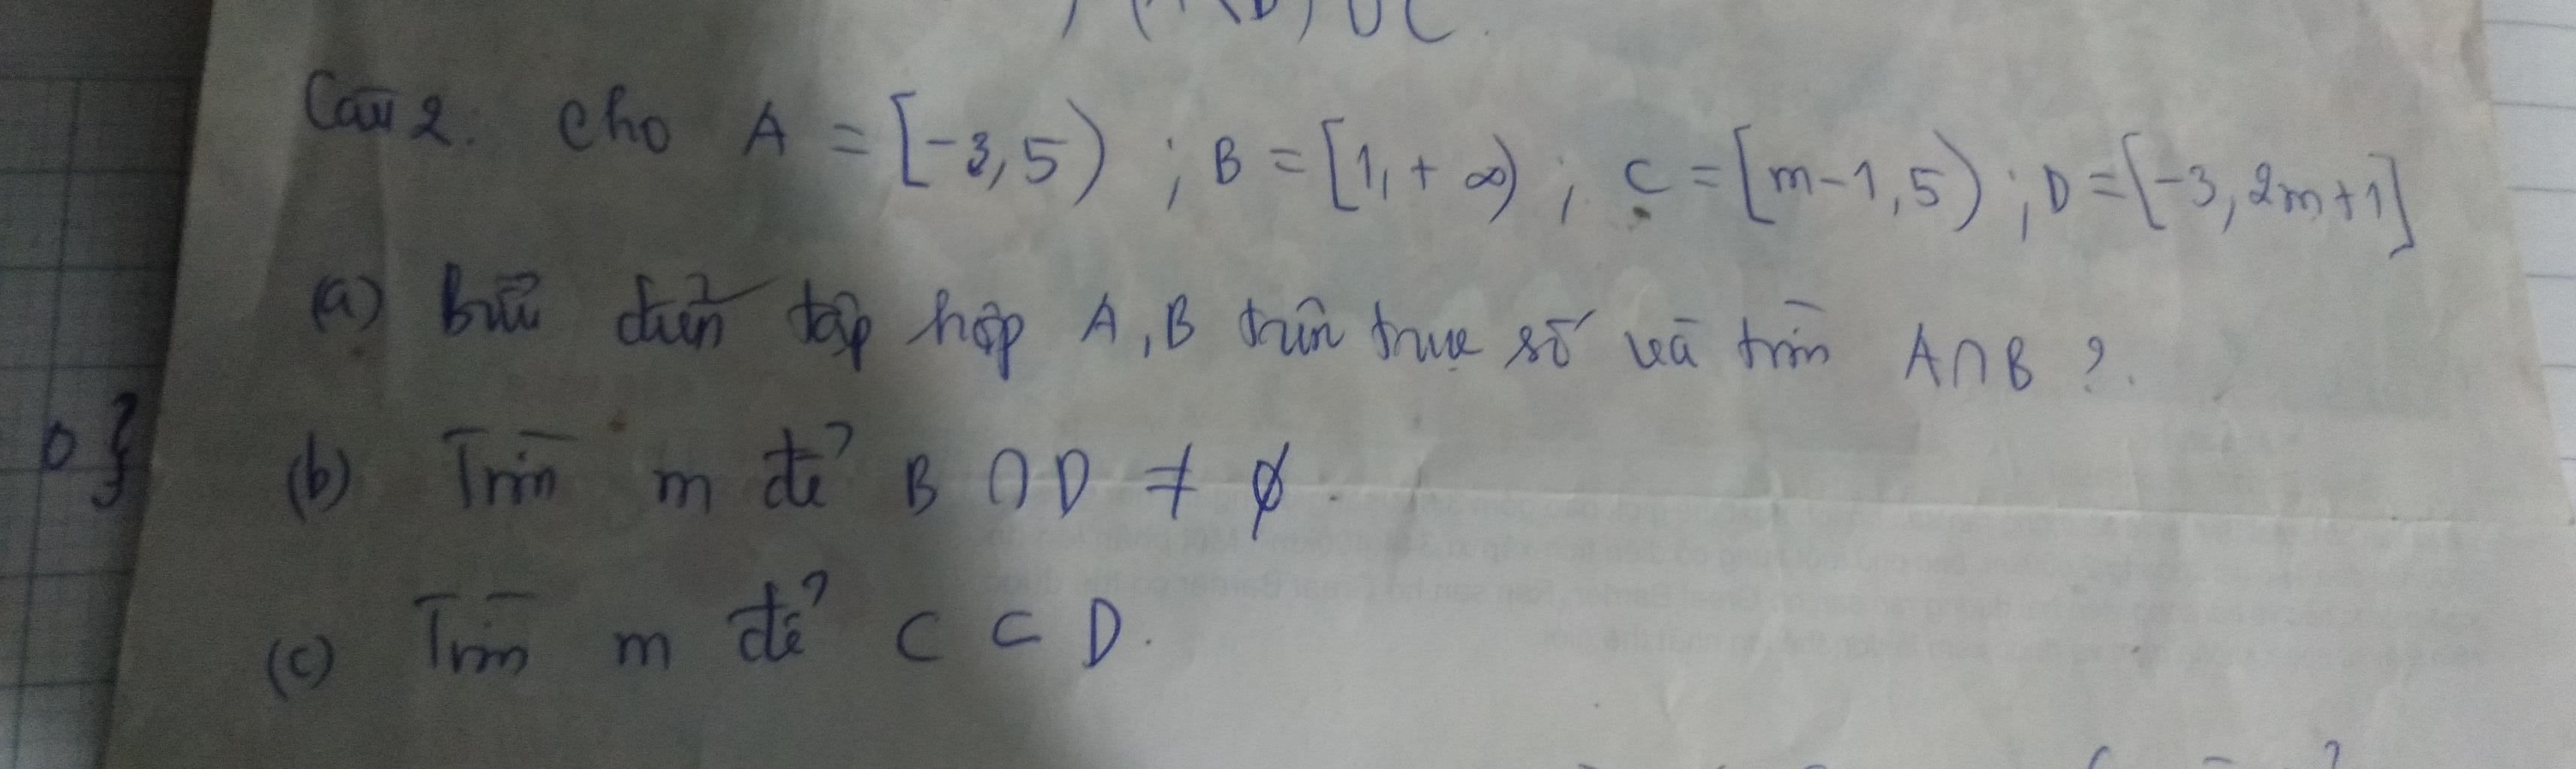 ) ∪ C.
Câu 2. Cho A = [-3, 5) ; B = [1, +∞) ; C = [m-1, 5) ; D = [-3, 2m+1]
(a) Biểu diễn tập hợp A, B trên trục số và tìm A∩B ?.
(b) Tìm m để B ∩ D ≠ ∅.
(c) Tìm m để C ⊂ D.